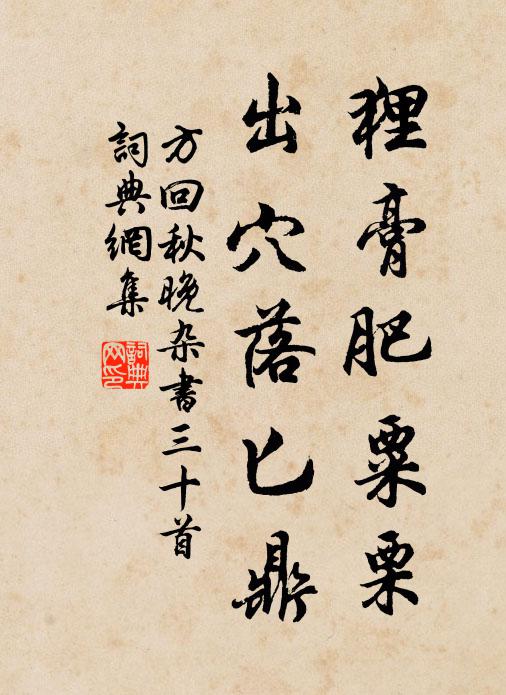 狸膏肥粟栗
出穴落匕鼎
方回秋晚杂书三十首
词典網集
詞典网印